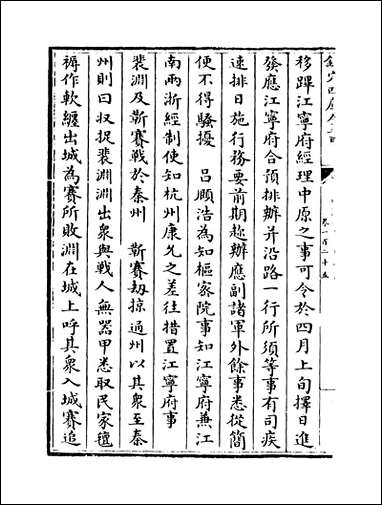 欽定四庫全書
卷一百二十五
移蹕江寧府經理中原之事可令於四月上旬擇日進
發應江寧府合預排辦并沿路一行所須等事有司疾
速排日施行務要前期趁辦應副諸軍外餘事悉從簡
便不得騷擾　呂頤浩為知樞家院事知江寧府兼江
南兩浙經制使知杭州康允之差往措置江寧府事
裴淵及靳賽戰於泰州　靳賽刼掠通州以其衆至泰
州則曰収捉裴淵淵出衆與戰人無器甲悉取民家氊
褥作軟纏出城為賽所敗淵在城上呼其衆入城賽追